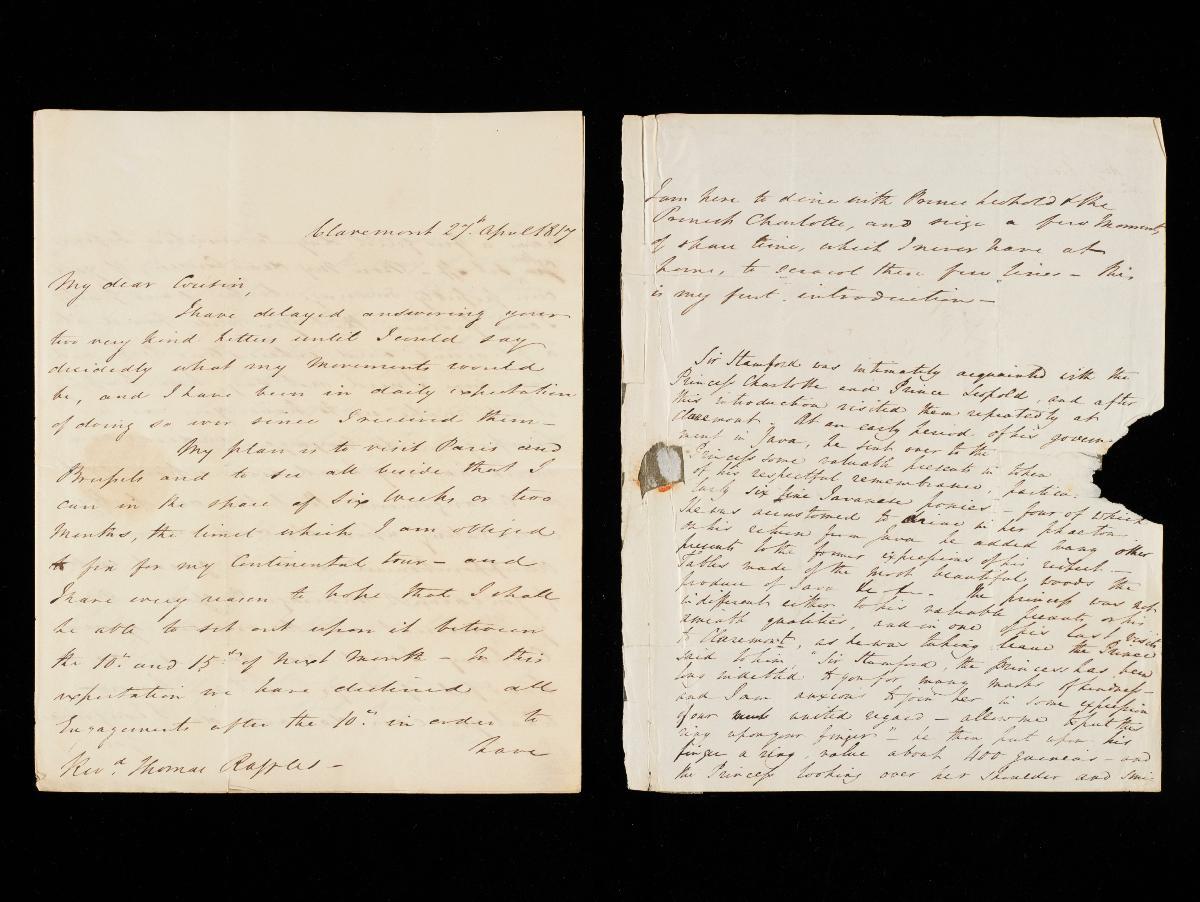 Claremont 27th April 1817
My dear Cousin,
I have delayed answering your
two very kind letters until I could say
decidedly what my Movements would
be, and I have been in daily expectation
of doing so ever since I received them –
My plan is to visit Paris and
Brussels and to see all beside that I
can in the space of Six Weeks or two
Months, the limit which I am obliged
to fix for my Continental tour – and
I have every reason to hope that I shall
be able to set out upon it between
the 10th and 15th of next Month – In this
expectation we have declined all
Engagements after the 10th in order to
have
Revd. Thomas Raffles –
I am here to dine with Prince Leopold & the
Princess Charlotte, and seize a few Moments
of spare time, which I never have at
home, to scrawl these few lines – this
is my first introduction –
Sir Stamford was intimately acquainted with the
Princess Charlotte and Prince Leopold, and after
this introduction visited them repeatedly at
Claremont. At an early period of his govern-
ment in Java, he sent over to the
Princess some valuable presents in token
of his respectful remembrance, particu-
larly six fine Javanese ponies – four of which
she was accustomed to drive in her phaeton
on his return from Java he added many other
presents to the former expressions of his respect –
Tables made of the most beautiful woods the
produce of Java &c &c. The princess was not
indifferent either to his valuable presents or his
amiable qualities, and in one of his last visits
to Claremont, as he was taking leave the Prince
said to him, Sir Stamford, the Princess has been
long indebted to you for many marks of kindness –
and I am anxious to join her in some expression
of our united regard – allow me to put this
ring upon your finger" – he then put upon his
finger a ring, value about 400 guineas – and
the Princess looking over her shoulder and smi-